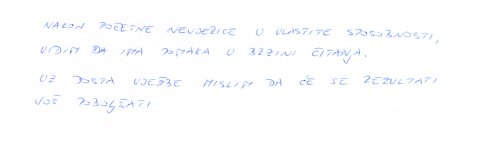 NAKON POČETNE NEVJERICE U VLASTITE SPOSOBNOSTI,
VIDIM DA IMA POMAKA U BRZINI ČITANJA.
UZ DOSTA VJEŽBE MISLIM DA ĆE SE REZULTATI
JOŠ POBOLJŠATI